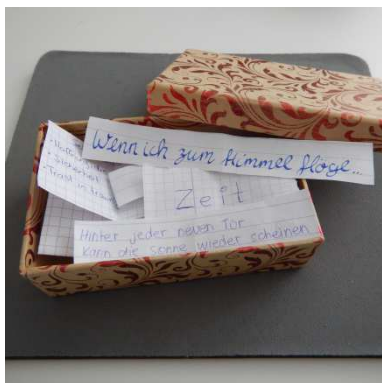 Wenn ich zum Himmel flöge...
- Sicherheit
- Trost in
Zeit
Hinter jeder neuen Tür
kann die Sonne wieder scheinen